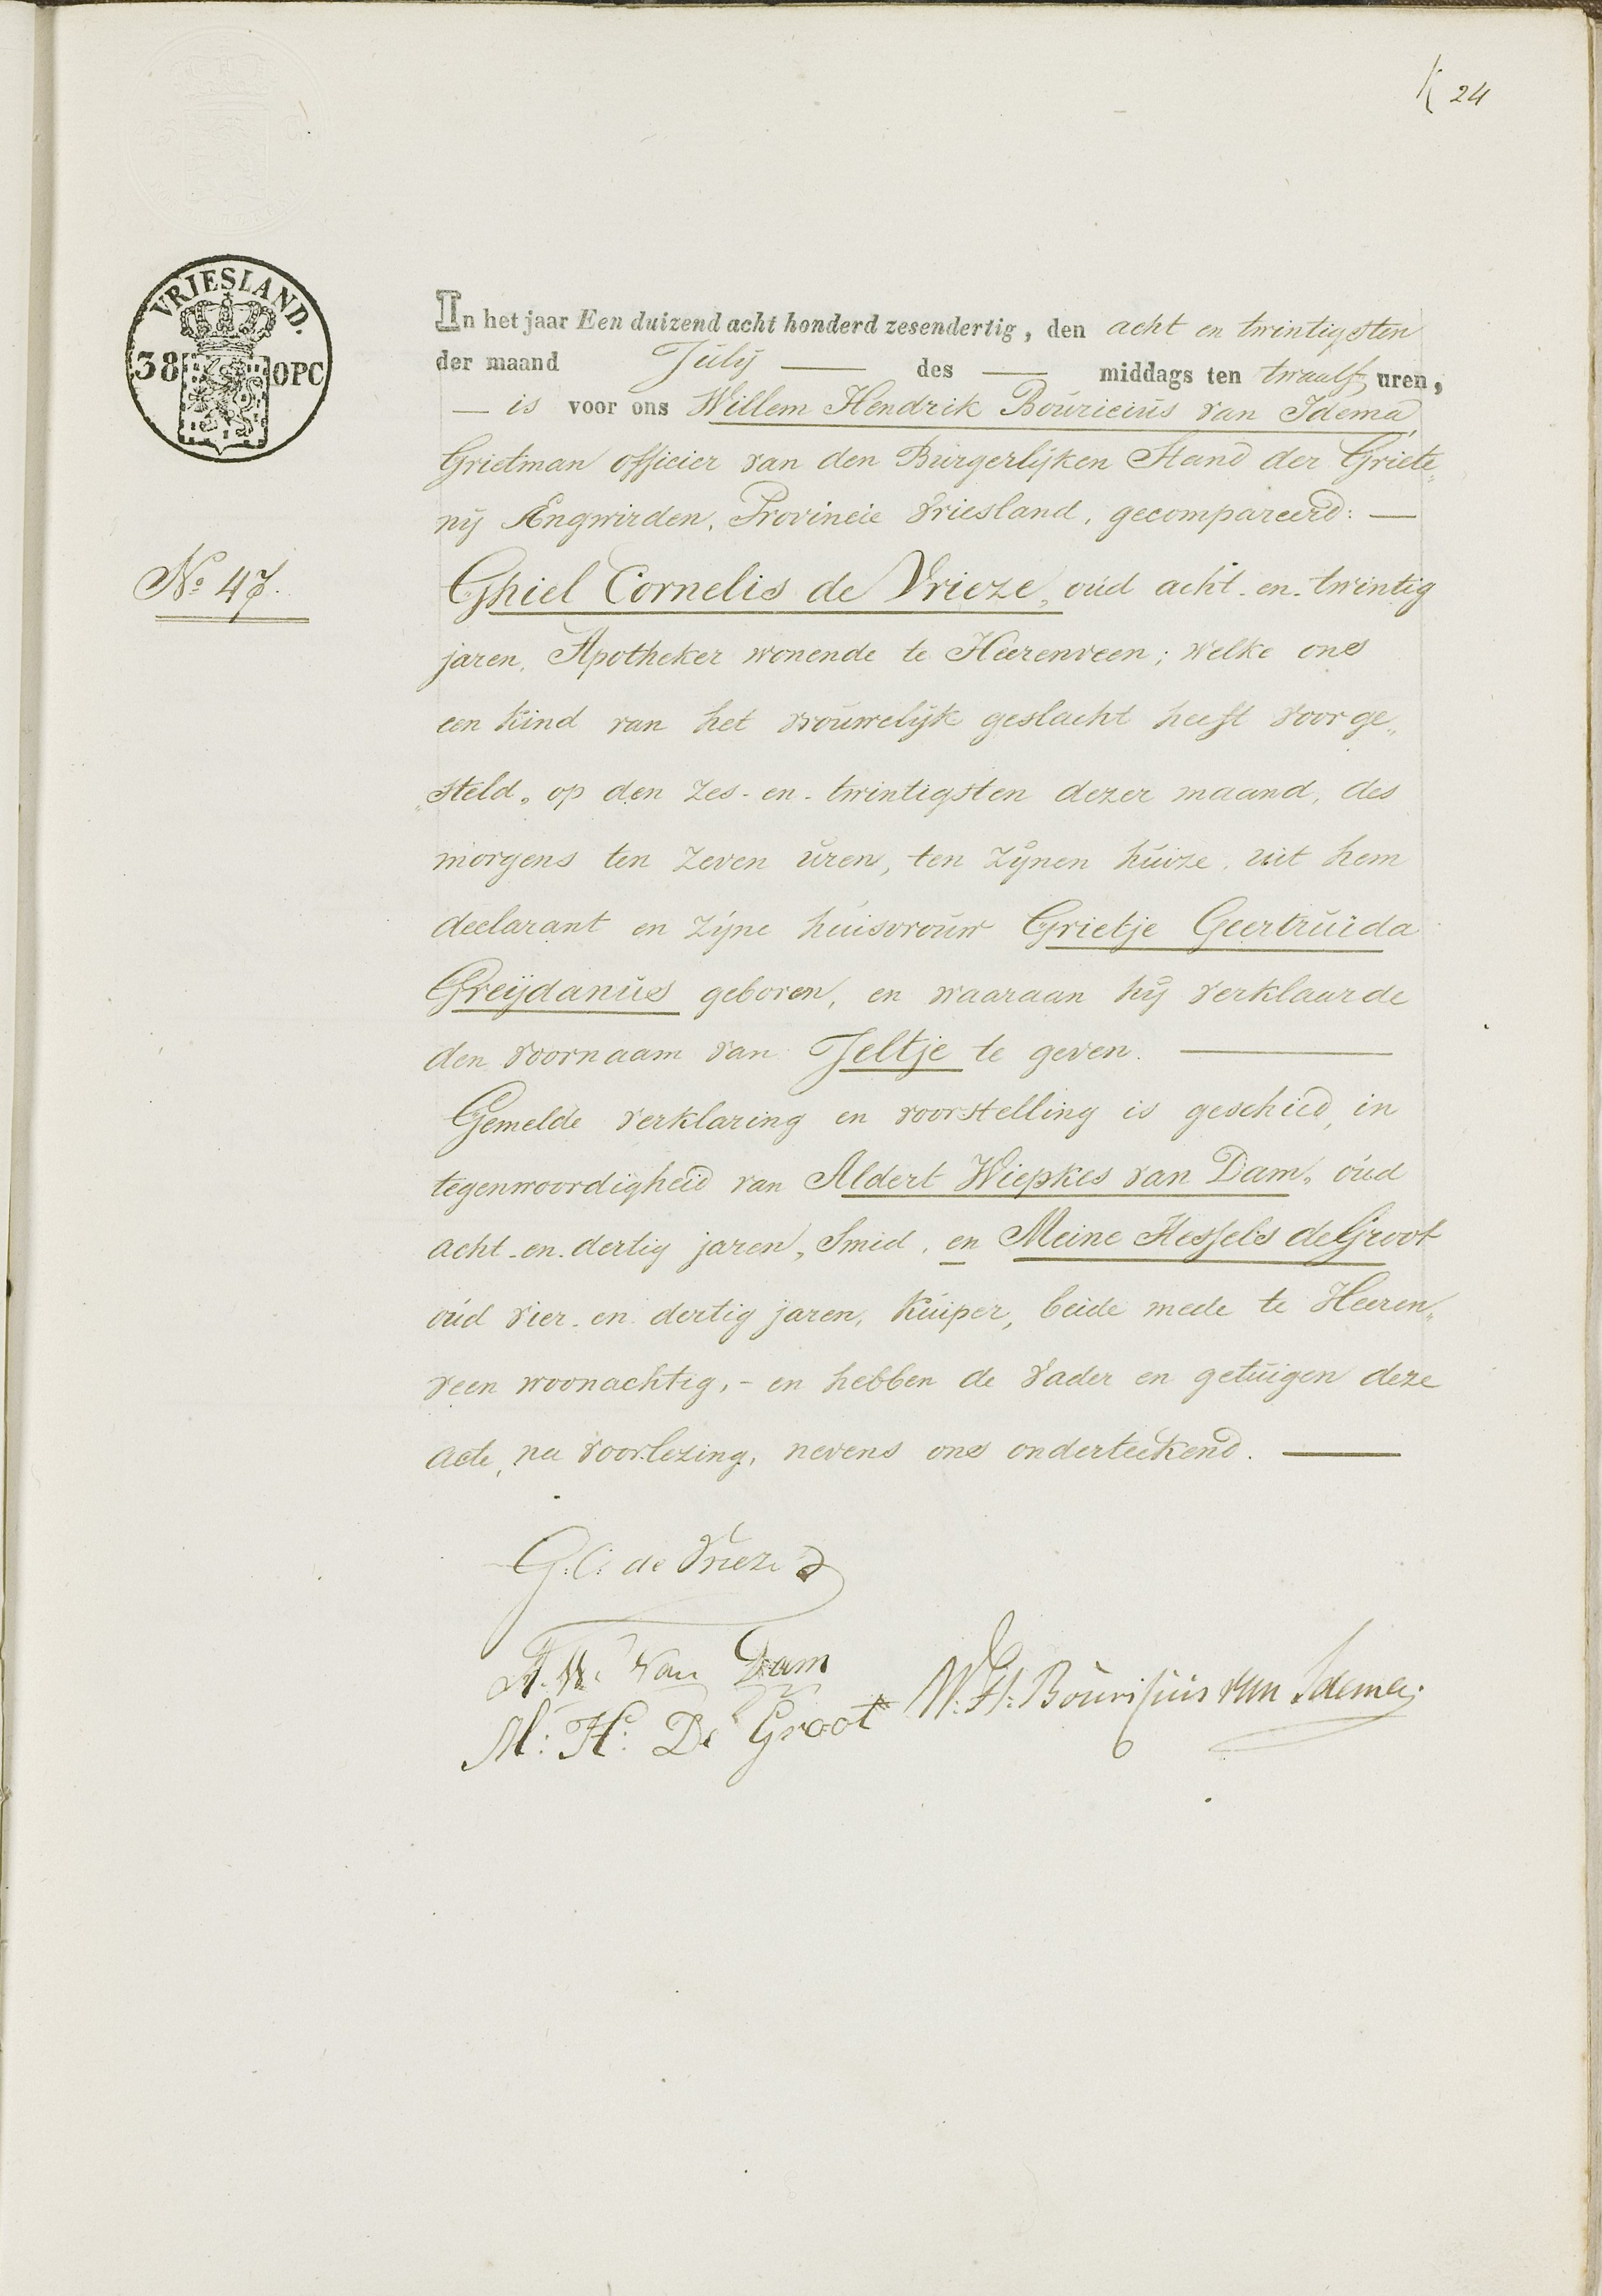 K 24
VRIESLAND.
38 OPC
In het jaar Een duizend acht honderd zesendertig, den acht en twintigsten
der maand July — des — middags ten twaalf uren,
— is voor ons Willem Hendrik Bouricius van Idema,
Grietman officier van den Burgerlijken Stand der Griete„
nij Ængwirden, Provincie Vriesland, gecompareerd: —
No 47.
Ghiel Cornelis de Vrieze, oud acht-en-twintig
jaren, Apotheker wonende te Heerenveen; welke ons
een kind van het vrouwelijk geslacht heeft voorge„
„steld, op den zes-en-twintigsten dezer maand, des
morgens ten zeven uren, ten zijnen huize, uit hem
declarant en zijne huisvrouw Grietje Geertruida
Greijdanus geboren, en waaraan hij verklaarde
den voornaam van Jeltje te geven. —
Gemelde verklaring en voorstelling is geschied, in
tegenwoordigheid van Aldert Wiepkes van Dam, oud
acht-en-dertig jaren, Smid, en Meine Hessels de Groot
oud vier-en dertig jaren, Kuiper, beide mede te Heeren„
veen woonachtig, - en hebben de vader en getuigen deze
acte, na voorlezing, nevens ons onderteekend. —
G: C: de Vrieze
A. W. van Dam
M: H: De Groot
W: H: Bouricius van Idema